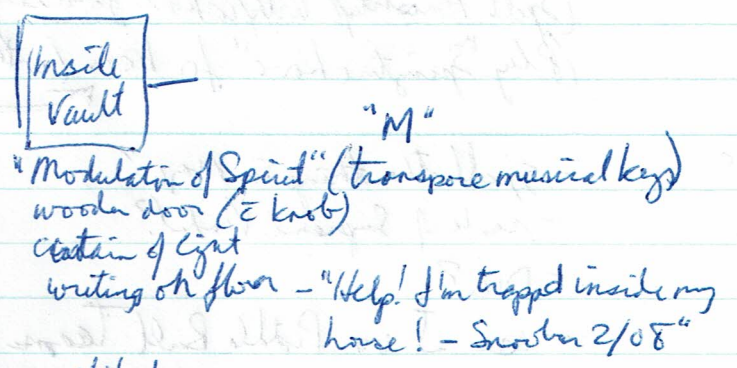 Inside
Vault
"M"
"Modulation of Spirit" (transpose musical keys)
wooden door (c̄ knob)
curtain of light
writing on floor - "Help! I'm trapped inside my
house! - 2/08"